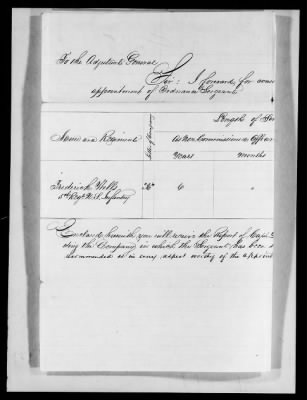 To the Adjutant General
Sir: I forward, for cons
appointment of Ordnance Sergeant
Length of Ser
Name and Regiment
Letter of Company
As Non Commissioned Officer
Years
Months
Frederick Wells
5th Regt U.S. Infantry
"K"
6
"
Enclosed herewith you will receive the Report of Capt
ding the Company in which the Sergeant has been
recommended is in every respect worthy of the appoint